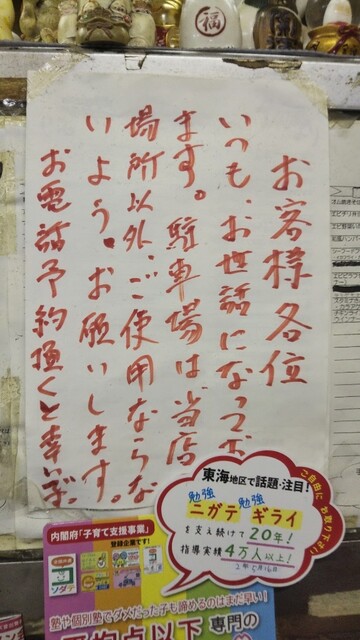 お客様各位
いつも、お世話になってお
ます。駐車場は、当店
場所以外、ご使用ならな
いよう。お願いします。
お電話予約頂くと幸いです。
福
東海地区で話題・注目!
ご自由にお取り下さい
勉強 勉強
ニガテ ギライ
を支え続けて20年!
指導実績4万人以上!
内閣府「子育て支援事業」
登録企業です!
ソダテ
塾や個別塾でダメだった子も諦めるのはまだ早い!
平均点以下 専門の